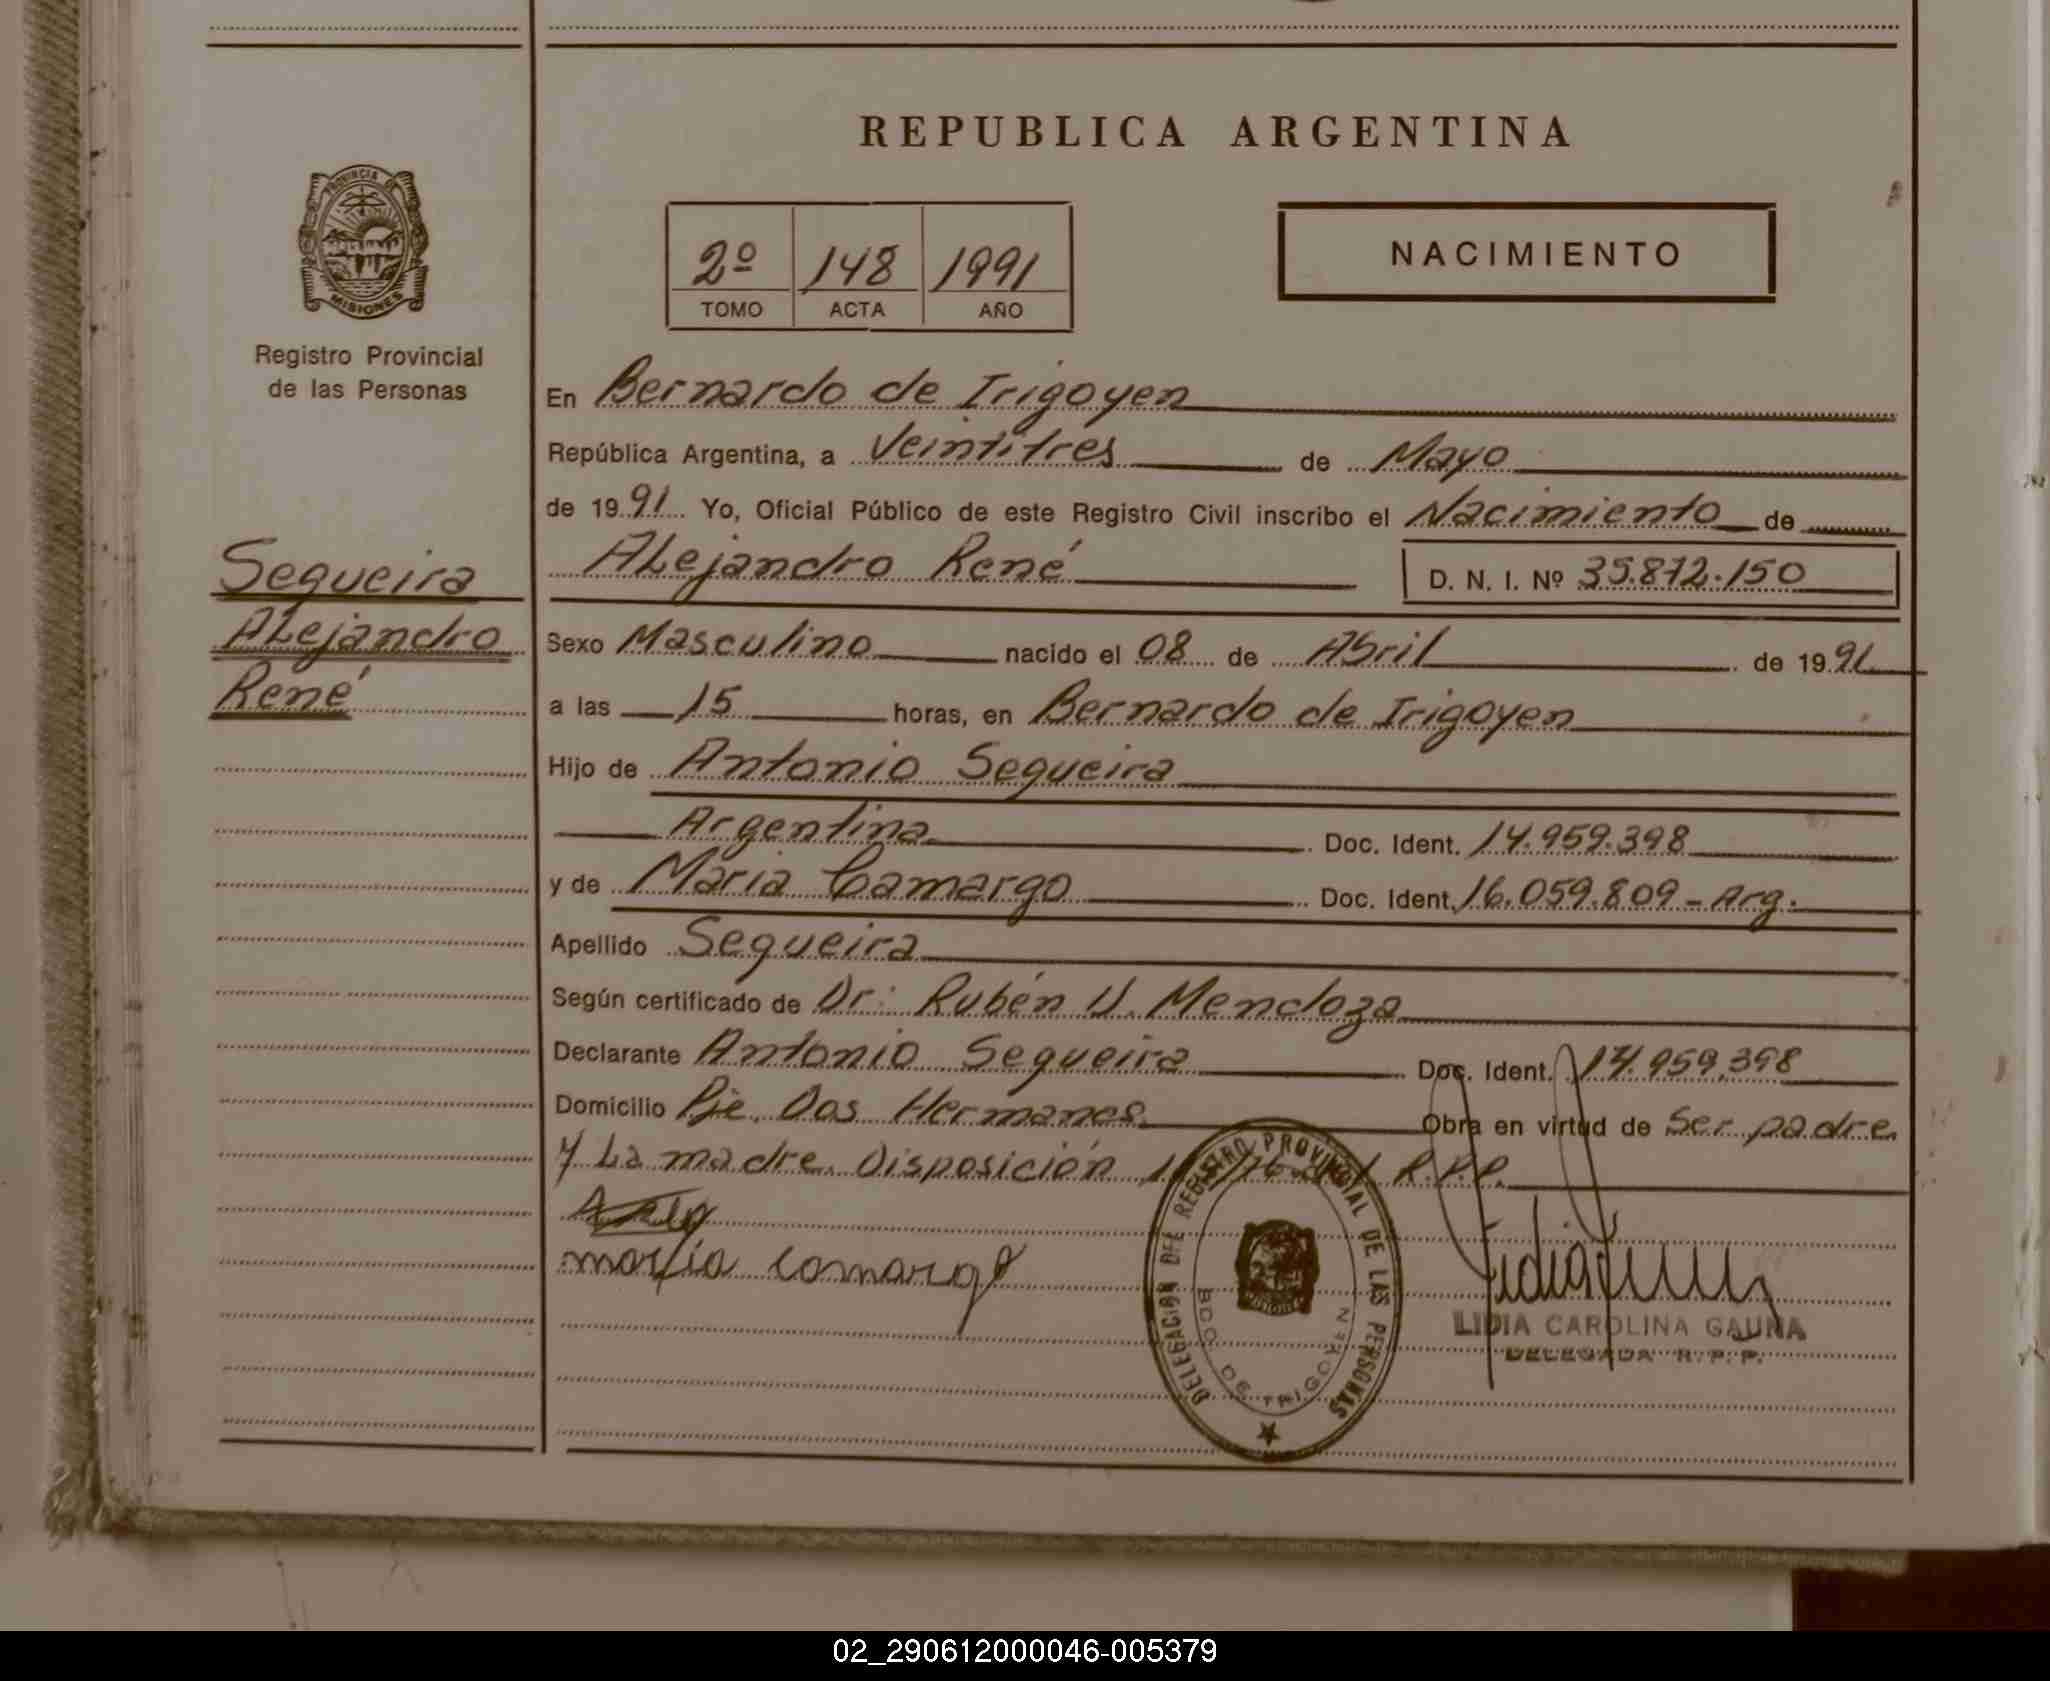 REPUBLICA ARGENTINA
PROVINCIA DE
MISIONES
Registro Provincial
de las Personas
2º 148 1991
TOMO ACTA AÑO
NACIMIENTO
Segueira
ALejandro
René
En Bernardo de Irigoyen
República Argentina, a Veintitres de Mayo
de 1991 Yo, Oficial Público de este Registro Civil inscribo el Nacimiento de
ALejandro René D. N. I. Nº 35.872.150
Sexo Masculino nacido el 08 de Abril de 1991
a las 15 horas, en Bernardo de Irigoyen
Hijo de Antonio Segueira
Argentina Doc. Ident. 14.959.398
y de Maria Camargo Doc. Ident. 16.059.809 - Arg.
Apellido Segueira
Según certificado de Dr: Rubén U. Mendoza
Declarante Antonio Segueira Doc. Ident. 14.959.398
Domicilio Pje. Dos Hermanas Obra en virtud de Ser padre
y La madre. Disposición R.P.P.
maria Comargo
DELEGACION DEL REGISTRO PROVINCIAL DE LAS PERSONAS
BDO. DE IRIGOYEN
LIDIA CAROLINA GAUNA
DELEGADA R. P. P.
02_290612000046-005379